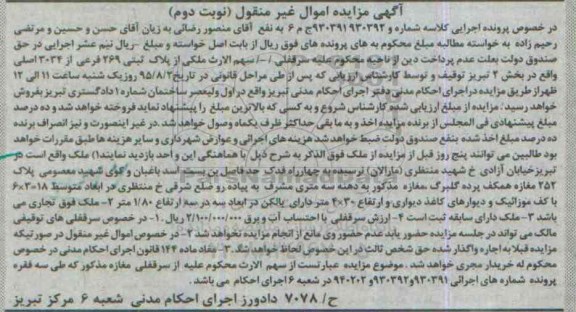 آگهی مزایده اموال غیر منقول (نوبت دوم)
در خصوص پرونده اجرایی کلاسه شماره ۹۳۰۳۹۲ و ۹۳۰۳۹۱ ج م ۶ به نفع آقای منصور رضائی به زیان آقای حسن و حسین و مرتضی
رحیم زاده به خواسته مطالبه مبلغ محکوم به های پرونده های فوق ریال از بابت اصل خواسته و مبلغ -ریال نیم عشر اجرایی در حق
صندوق دولت بعلت عدم پرداخت دین از ناحیه محکوم علیه سرقفلی /-/ سهم الارث ملکی از پلاک ثبتی ۲۶۹ فرعی از ۲۰۳۴ اصلی
واقع در بخش ۲ تبریز توقیف و توسط کارشناس ارزیابی که پس از طی مراحل قانونی در تاریخ ۹۵/۸/۳ روز یک شنبه ساعت ۱۱ الی ۱۲
ظهر از طریق مزایده در اجرای احکام مدنی دفتر اجرای احکام مدنی تبریز واقع در اول ولیعصر ساختمان شماره ۱ دادگستری تبریز بفروش
خواهد رسید؛ مزایده از مبلغ ارزیابی شده کارشناس شروع و به کسی که بالاترین مبلغ را پیشنهاد نماید فروخته خواهد شد و ده درصد
مبلغ پیشنهادی فی المجلس از برنده مزایده اخذ و به ما بقی حداکثر ظرف یکماه وصول خواهد شد. در غیر اینصورت و نیز انصراف برنده
ده درصد مبلغ اخذ شده بنفع صندوق دولت ضبط خواهد شد هزینه های اجرائی و عوارض شهرداری و سایر هزینه ها طبق مقررات خواهد
بود طالبین می توانند پنج روز قبل از مزایده از ملک فوق الذکر به شرح ذیل با هماهنگی این واحد بازدید نمایند۱) ملک واقع است در
تبریز خیابان آزادی خ شهید منتظری (مارالان) نرسیده به چهارراه فدک حد فاصل بن بست اسد باغبان و کوی شهید معصومی پلاک
۲۵۲ مغازه همکف پرده گلبرگ. مغازه مذکور به دهنه سه متری مشرف به پیاده رو ضلع شرقی خ منتظری در ابعاد متوسط ۱۸×۳×۶
با کف موزائیک و دیوارهای کاغذ دیواری و ارتفاع ۳۰×۴ متر دارای بالکن در ابعاد سه در سه ارتفاع ۱/۸۰ متر ۲- ملک فوق تجاری می
باشد ۳-ملک دارای سابقه ثبت است ۴- ارزش سرقفلی با احتساب آب و برق ۲/۱۰۰/۰۰۰/۰۰۰ ریال .۱- در خصوص سرقفلی های توقیفی
مالک می تواند در جلسه مزایده حضور یابد عدم حضور وی مانع از انجام مزایده نخواهد شد ۲- در خصوص اموال غیر منقول در صورتیکه
مزایده قبلا به اجاره واگذار شده حق شخص ثالث در این خصوص لحاظ خواهد شد. ۳- مفاد ماده ۱۴۴ قانون اجرای احکام مدنی در خصوص
محکوم له خریدار مجری خواهد شد . موضوع مزایده عبارتست از سهم الارث محکوم علیه از سرقفلی مغازه مذکور که طی سه فقره
پرونده شماره های اجرائی ۹۳۰۳۹۱ و ۹۳۰۳۹۲ و ۹۴۰۲۰۲ در شعبه ۶ اجرای احکام می باشد .
ح/ ۷۰۷۸ دادورز اجرای احکام مدنی شعبه ۶ مرکز تبریز